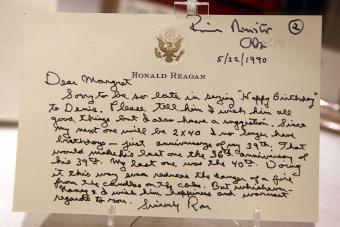 Prime Minister
②
5/22/1990
RONALD REAGAN
Dear Margret
Sorry to be so late in saying "Happy Birthday"
to Denis. Please tell him I wish him all
good things but I also have a suggestion. Since
my next one will be 2x40 I no longer have
birthdays – just anniversarys of my 39th. That
would make his last one the 36th anniversary of
his 39th. My last one was the 40th. Doing
it this way even reduces the danger of a fire
from the candles on the cake. But whichever
Nancy & I wish him happiness and warmest
regards to you. Sincerely Ron